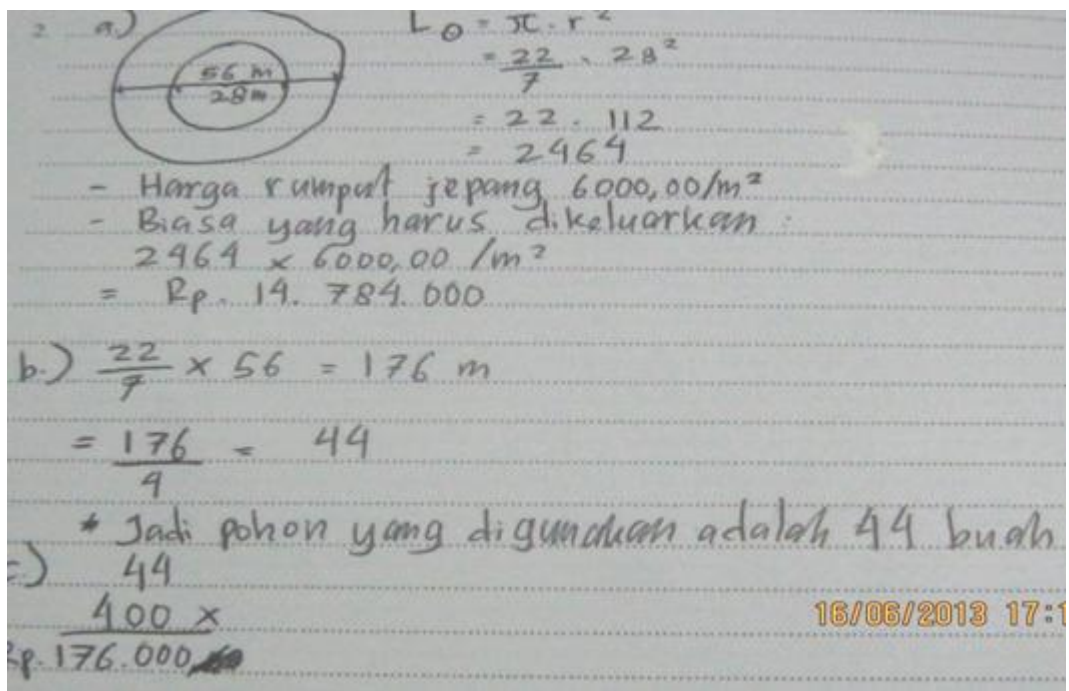 2 a.)
56 m
28 m
L O = π . r²
= 22/7 . 28²
= 22 . 112
= 2464
- Harga rumput jepang 6000,00/m²
- Biasa yang harus dikeluarkan :
2464 x 6000,00 /m²
= Rp. 14. 784.000
b.) 22/7 x 56 = 176 m
= 176/4 = 44
* Jadi pohon yang digunakan adalah 44 buah
c.) 44
400 x
Rp. 176.000
16/06/2013 17:1